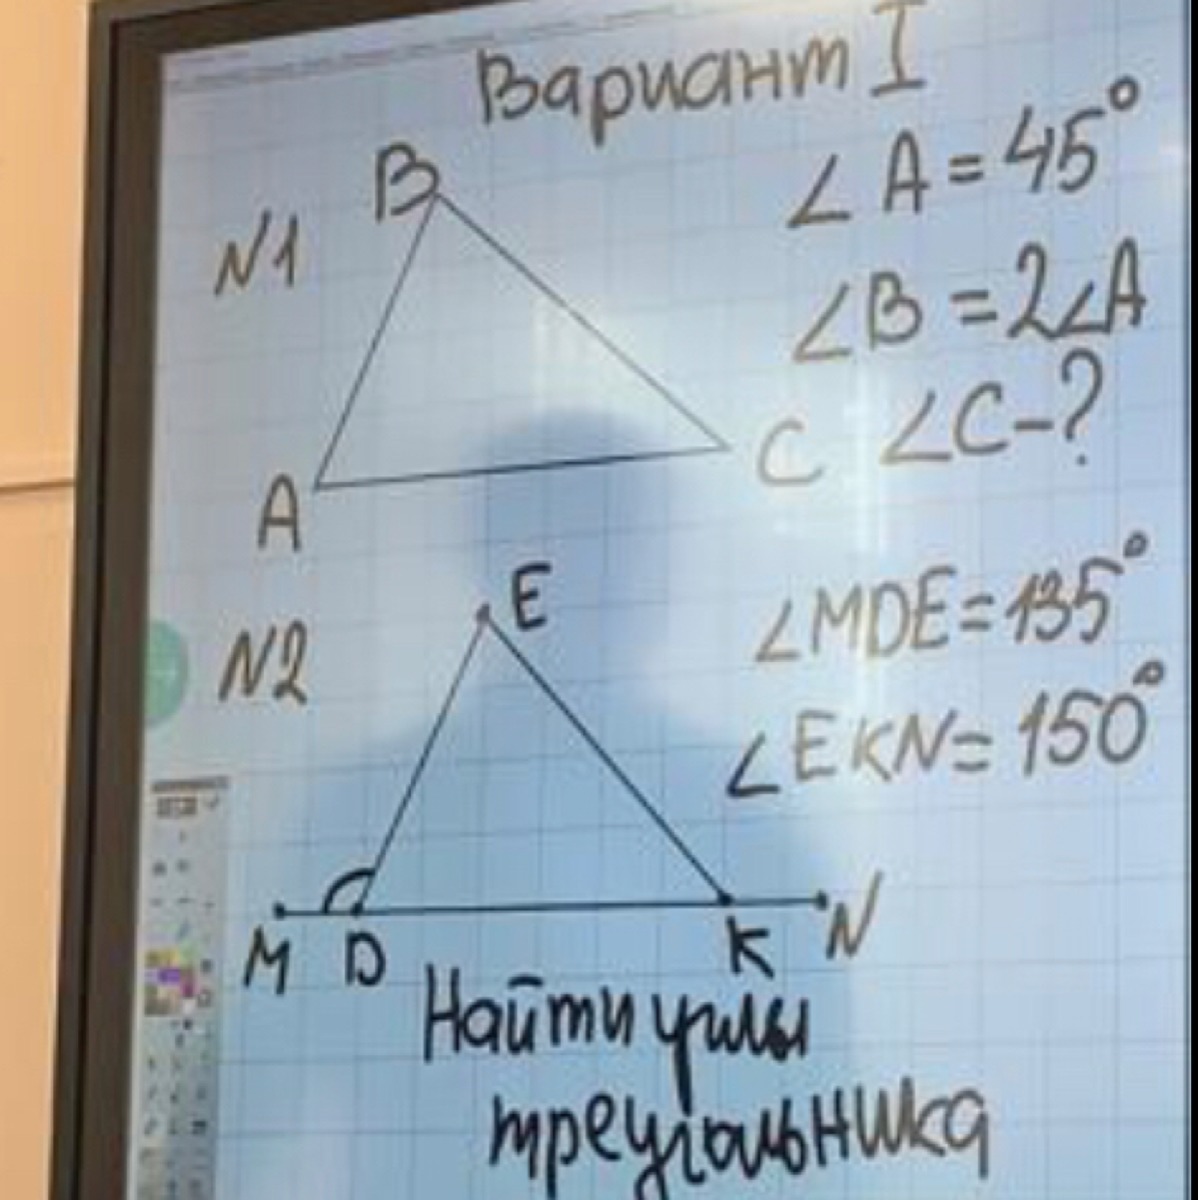 Вариант I
N1
B
A
C
∠A = 45°
∠B = 2∠A
∠C - ?
N2
E
M D K N
∠MDE = 135°
∠EKN = 150°
Найти углы
треугольника